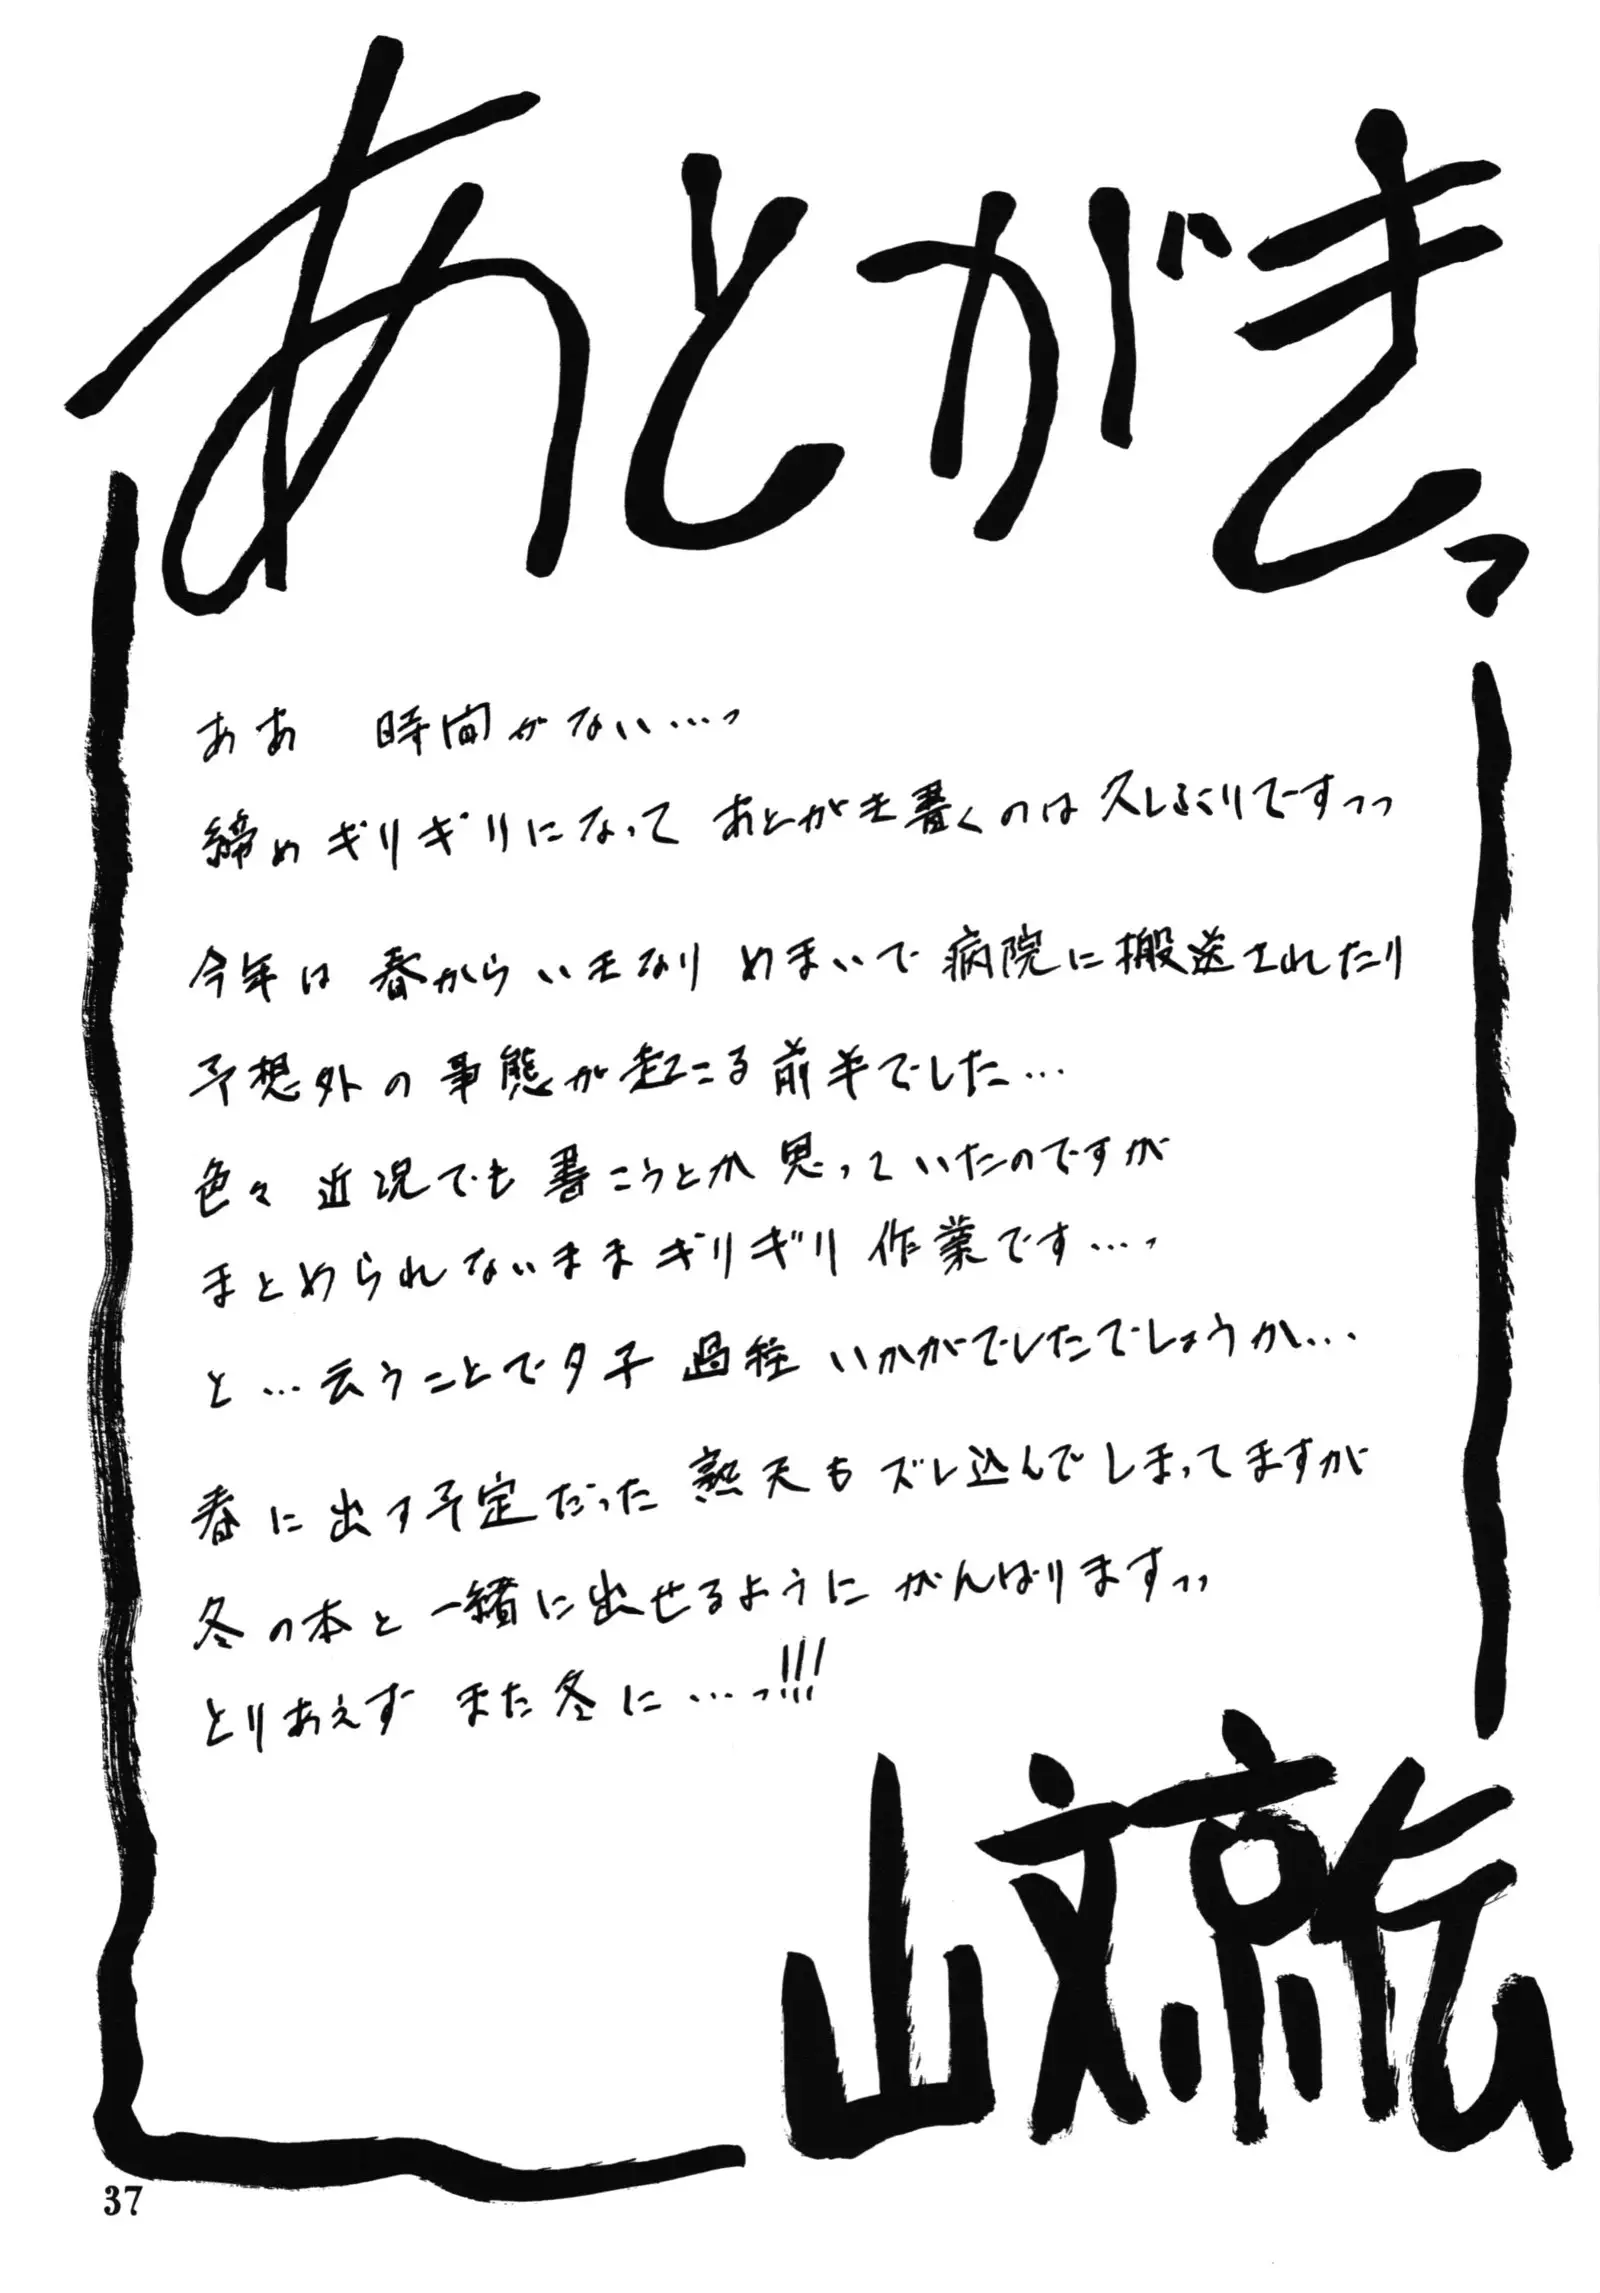 あとがきっ
ああ 時間がない…っ
締めギリギリになって あとがき書くのは 久しぶりですっっ
今年は 春から いきなり めまいで 病院に搬送されたり
予想外の事態が起こる前半でした…
色々 近況でも 書こうとか 思っていたのですが
まとめられないまま ギリギリ 作業です…っ
と…云うことで夕子 過程 いかがでしたでしょうか…
春に出す予定だった 熱天も ズレ込んで しまってますが
冬の本と 一緒に出せるように がんばりますっっ
とりあえず また冬に…っ!!!
山文京伝
37